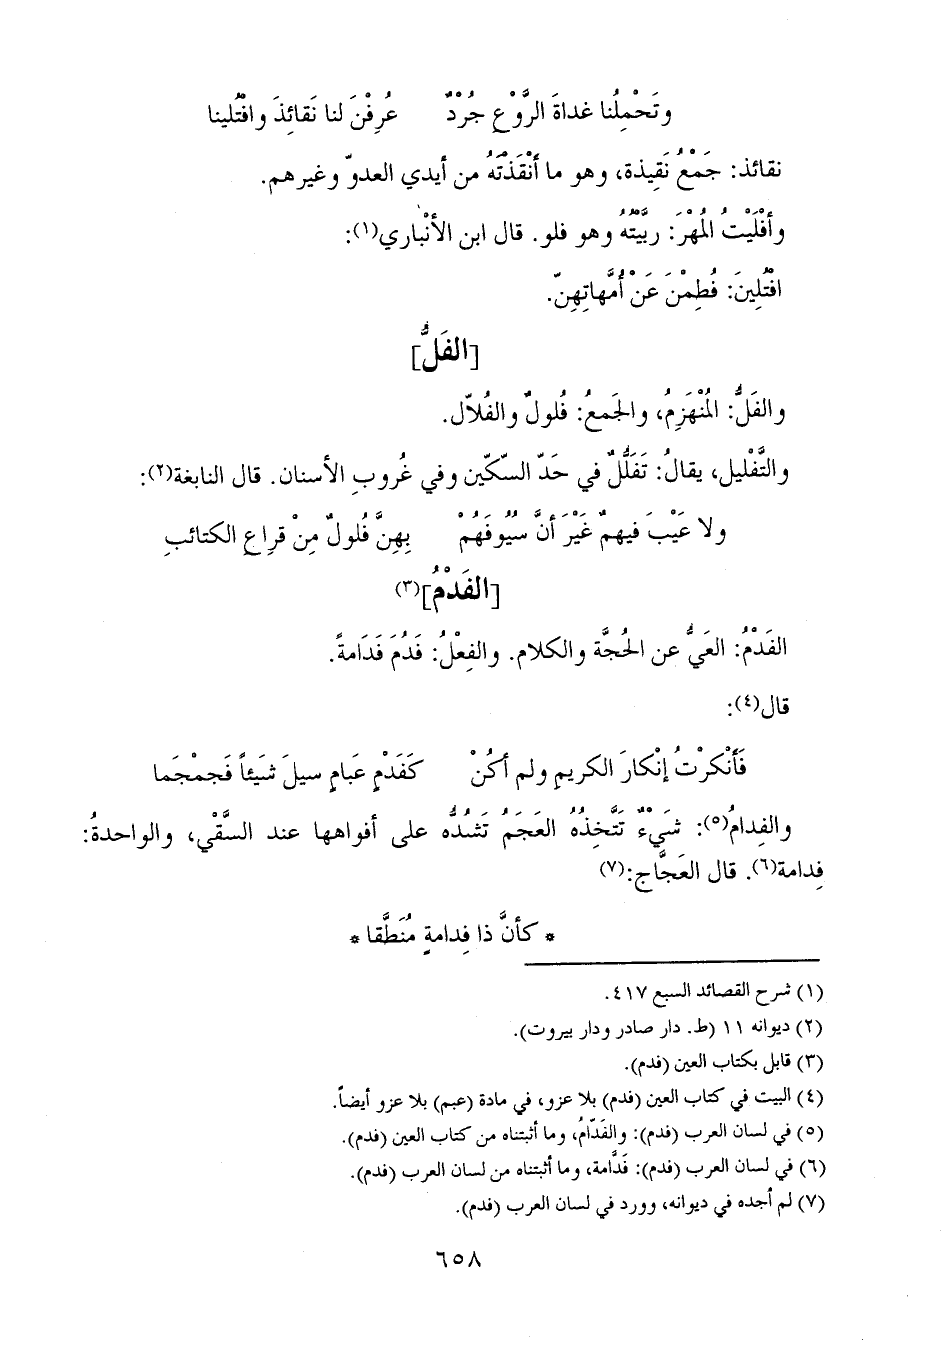 وتَحْمِلُنا غداةَ الرَّوْعِ جُرْدٌ عُرِفْنَ لنا نَقائِذَ وافْتُلينا
نقائذ: جَمْعُ نَقِيذة، وهو ما أَنْقَذْتَهُ من أيدي العدوّ وغيرهم.
وأَفْلَيْتُ المُهْرَ: رَبَّيْتُهُ وهو فلو. قال ابن الأنْباري(١):
افْتُلِينَ: فُطِمْنَ عَنْ أُمَّهاتِهِنّ.
[الفَلُّ]
والفَلُّ: المُنْهَزِمُ، والجَمعُ: فُلولٌ والفُلاّل.
والتَّفْليل، يقالُ: تَفَلُّلٌ في حَدّ السّكّين وفي غُروبِ الأسنان. قال النابغة(٢):
ولا عَيْبَ فيهمْ غَيْرَ أنَّ سُيُوفَهُمْ بِهِنَّ فُلولٌ مِنْ قِراعِ الكتائبِ
[الفَدْمُ](٣)
الفَدْمُ: العَيُّ عن الحُجَّة والكلام. والفِعْلُ: فَدُمَ فَدَامةً.
قال(٤):
فَأَنْكرْتُ إنْكارَ الكريمِ ولم أكُنْ كَفَدْمٍ عَبامٍ سيلَ شَيْئاً فَجمْجَما
والفِدامُ(٥): شَيْءٌ تَتَّخِذُهُ العَجَمُ تَشُدُّه على أفواهها عند السَّقْي، والواحدةُ:
فِدامة(٦). قال العَجَّاج:(٧)
* كأنَّ ذا فِدامةٍ مُنَطَّقا *
(١) شرح القصائد السبع ٤١٧.
(٢) ديوانه ١١ (ط. دار صادر ودار بيروت).
(٣) قابل بكتاب العين (فدم).
(٤) البيت في كتاب العين (فدم) بلا عزو، في مادة (عبم) بلا عزو أيضاً.
(٥) في لسان العرب (فدم): والفَدّامُ، وما أثبتناه من كتاب العين (فدم).
(٦) في لسان العرب (فدم): فَدَّامة، وما أثبتناه من لسان العرب (فدم).
(٧) لم أجده في ديوانه، وورد في لسان العرب (فدم).
٦٥٨